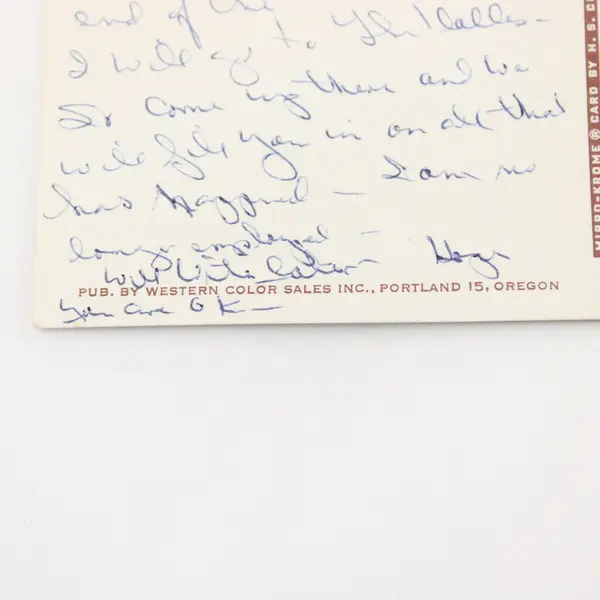 end of the
I will go to The Dalles -
So come up there and we
will fill you in on all that
has happened - I am no
longer employed -
Will write later - Hope
PUB. BY WESTERN COLOR SALES INC., PORTLAND 15, OREGON
you are OK -
MIRRO-KROME ® CARD BY H. S. C